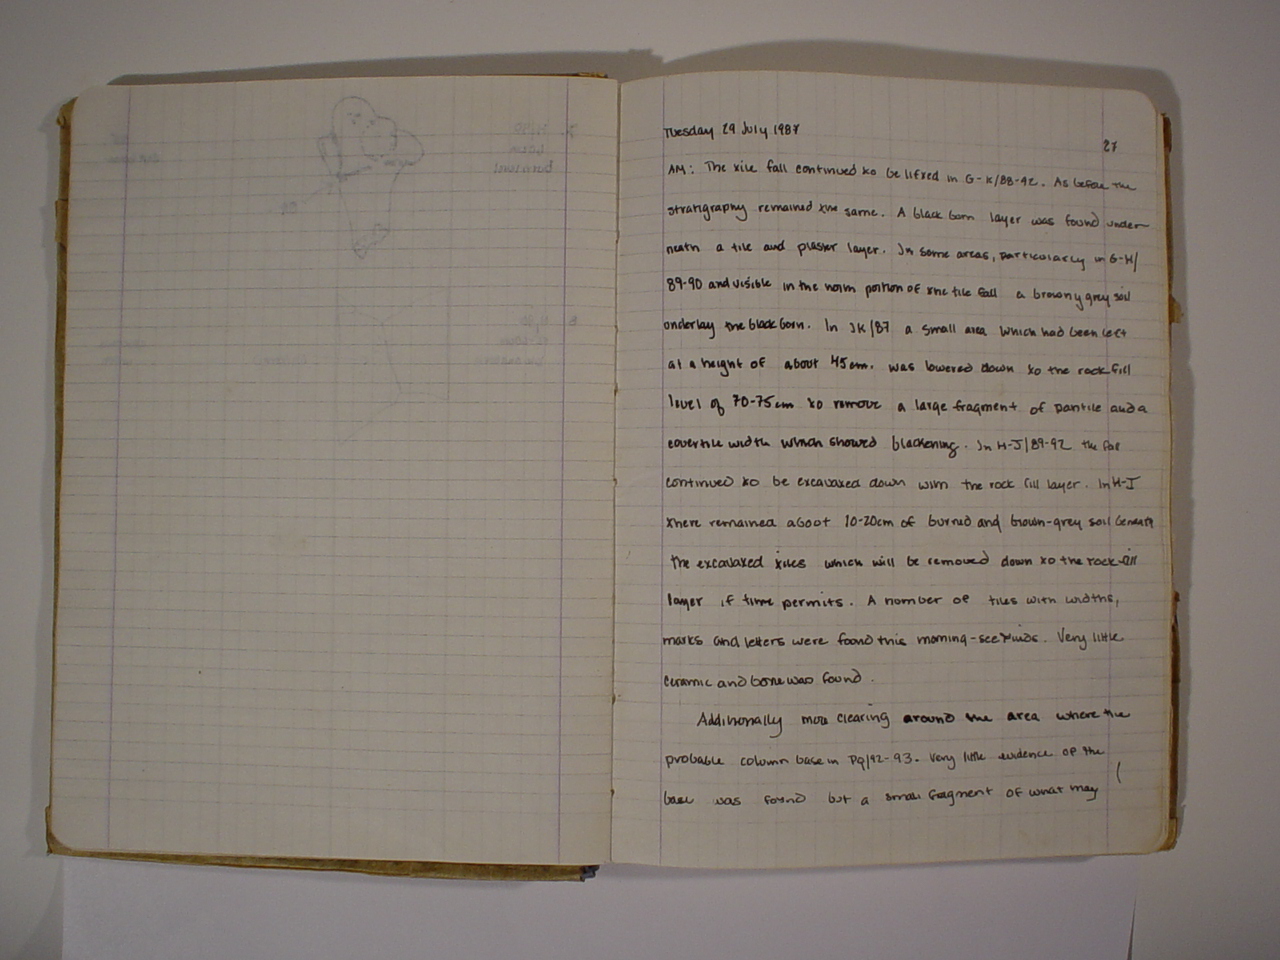 Tuesday 29 July 1987
27
AM: The tile fall continued to be lifted in G-K/88-92. As before the
stratigraphy remained the same. A black burn layer was found under-
neath a tile and plaster layer. In some areas, particularly in G-H/
89-90 and visible in the north portion of the tile fall a browny grey soil
underlay the black burn. In JK/87 a small area which had been left
at a height of about 45cm. was lowered down to the rock fill
level of 70-75cm to remove a large fragment of pantile and a
covertile width which showed blackening. In H-J/89-92 the
continued to be excavated down with the rock fill layer. In H-I
there remained about 10-20cm of burned and brown-grey soil beneath
the excavated tiles which will be removed down to the rock-fill
layer if time permits. A number of tiles with widths,
marks and letters were found this morning - see finds. Very little
ceramic and bone was found.
Additionally more clearing around the area where the
probable column base in PQ/92-93. Very little evidence of the
base was found but a small fragment of what may